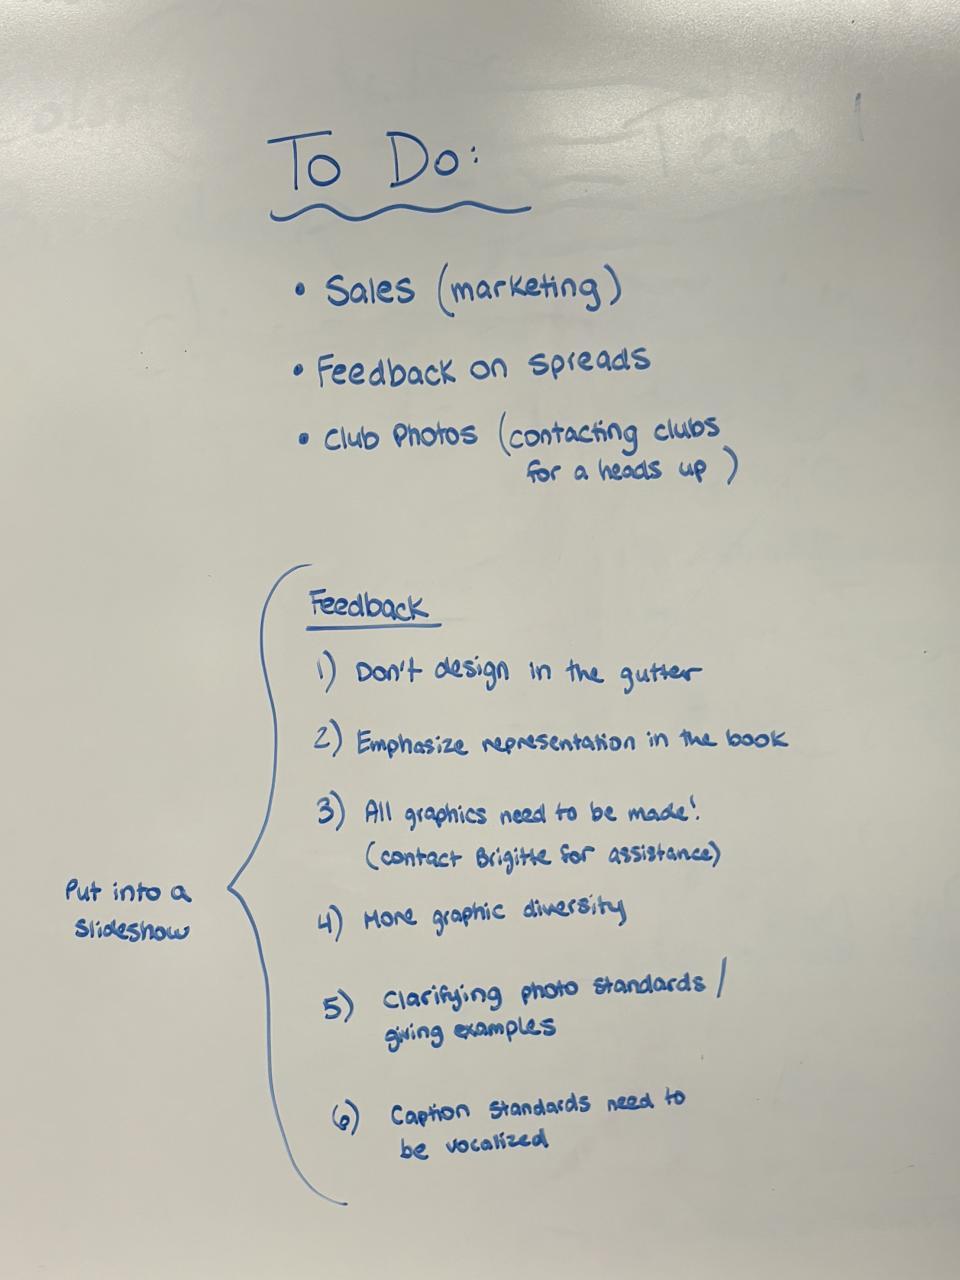 To Do:
• Sales (marketing)
• Feedback on spreads
• Club Photos (contacting clubs
for a heads up)
Feedback
1) Don't design in the gutter
2) Emphasize representation in the book
3) All graphics need to be made!
(contact Brigitte for assistance)
4) More graphic diversity
5) Clarifying photo standards /
giving examples
6) Caption standards need to
be vocalized
Put into a
slideshow